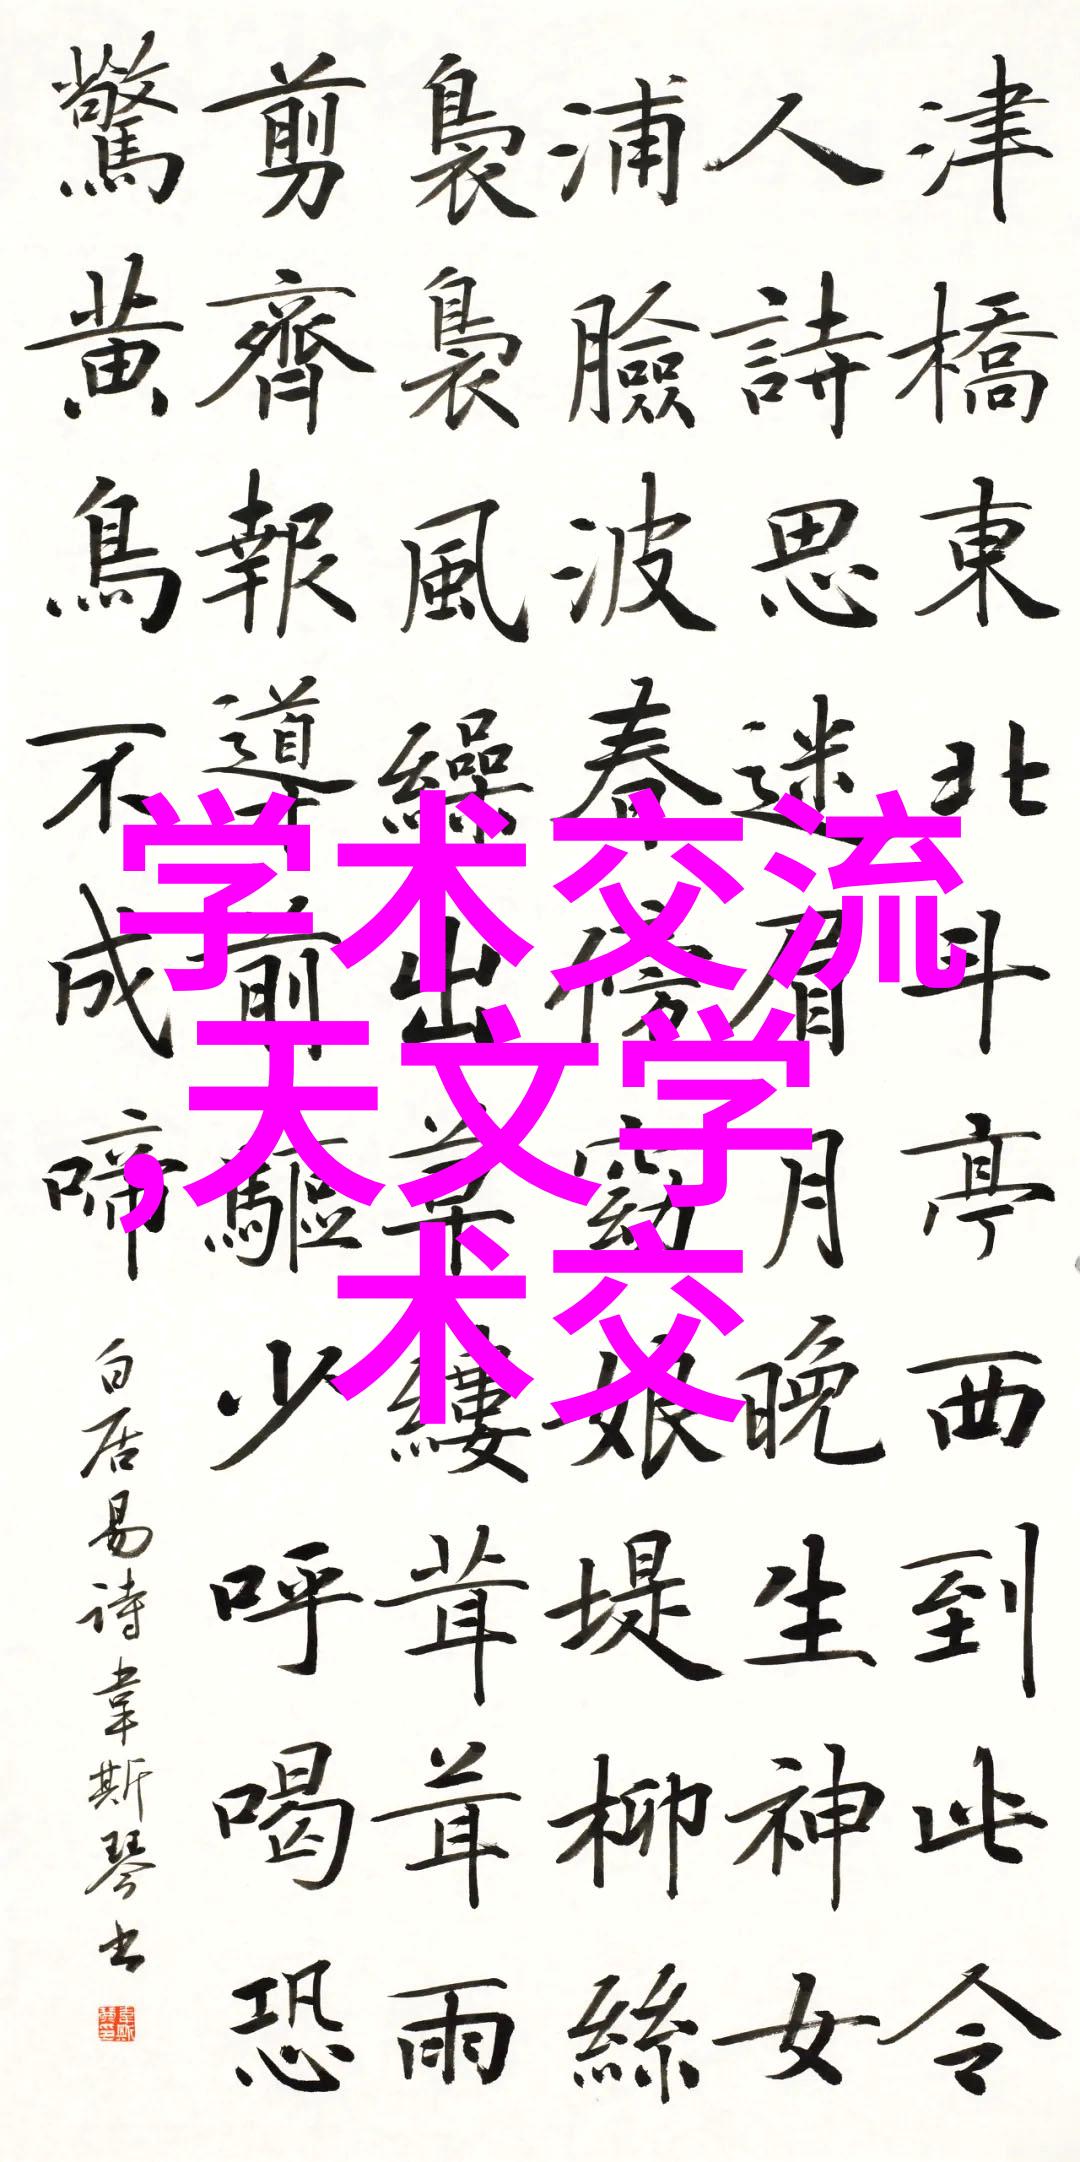 津橋東北斗亭西到此令
人詩思迷眉月晚生神女
浦臉波春傍窈娘堤柳絲
裊裊風繰出草縷茸茸雨
剪齊報道前驅少呼喝恐
驚黄鳥不成啼
白居易诗韋斯琴书
学术交流
,天文学
术交